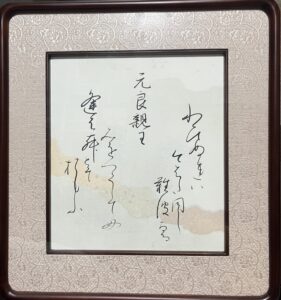 わひぬれは
今はた同し
難波なる
元良親王
みをつくしても
逢はむとそ
おもふ